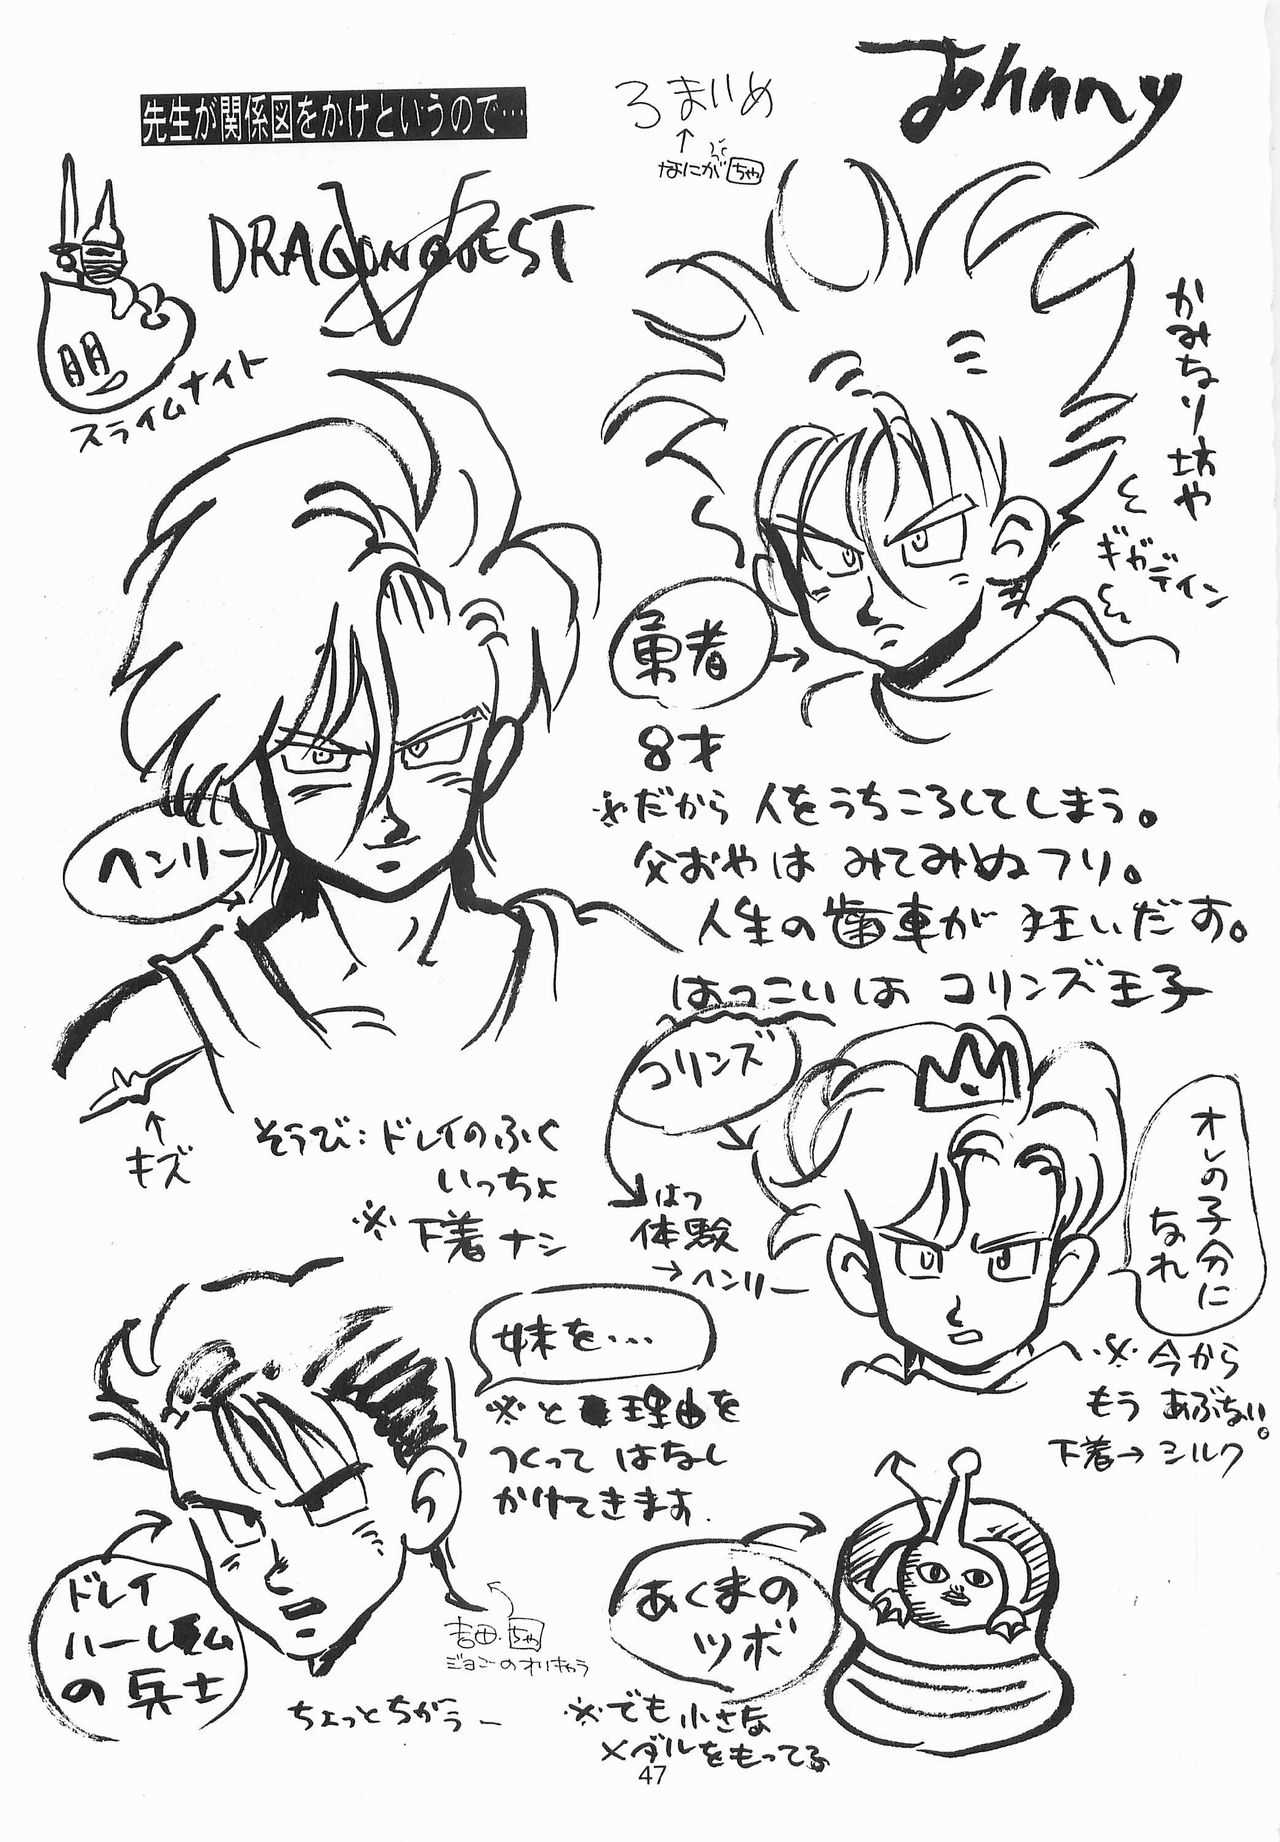 先生が関係図をかけというので…
ろまりめ
なにが
ちゃ
Johnny
DRAGONQUEST
V
スライムナイト
かみなり坊や
ギガデイン
勇者
8才
※だから 人をうちころしてしまう。
父おやは みてみぬフリ。
人生の歯車が 狂いだす。
はつこいは コリンズ王子
ヘンリー
キズ
そうび:ドレイのふく
いっちょ
※下着ナシ
コリンズ
はつ
体験
→ヘンリー
オレの子分に
なれ
※今から
もう あぶない。
下着→シルク
妹を…
※と 理由を
つくって はなし
かけてきます.
ドレイ
ハーレム
の兵士
吉田・ちゃ
ジョニーのオリキャラ
ちょっとちがうー
あくまの
ツボ
※でも 小さな
メダルをもってる
47